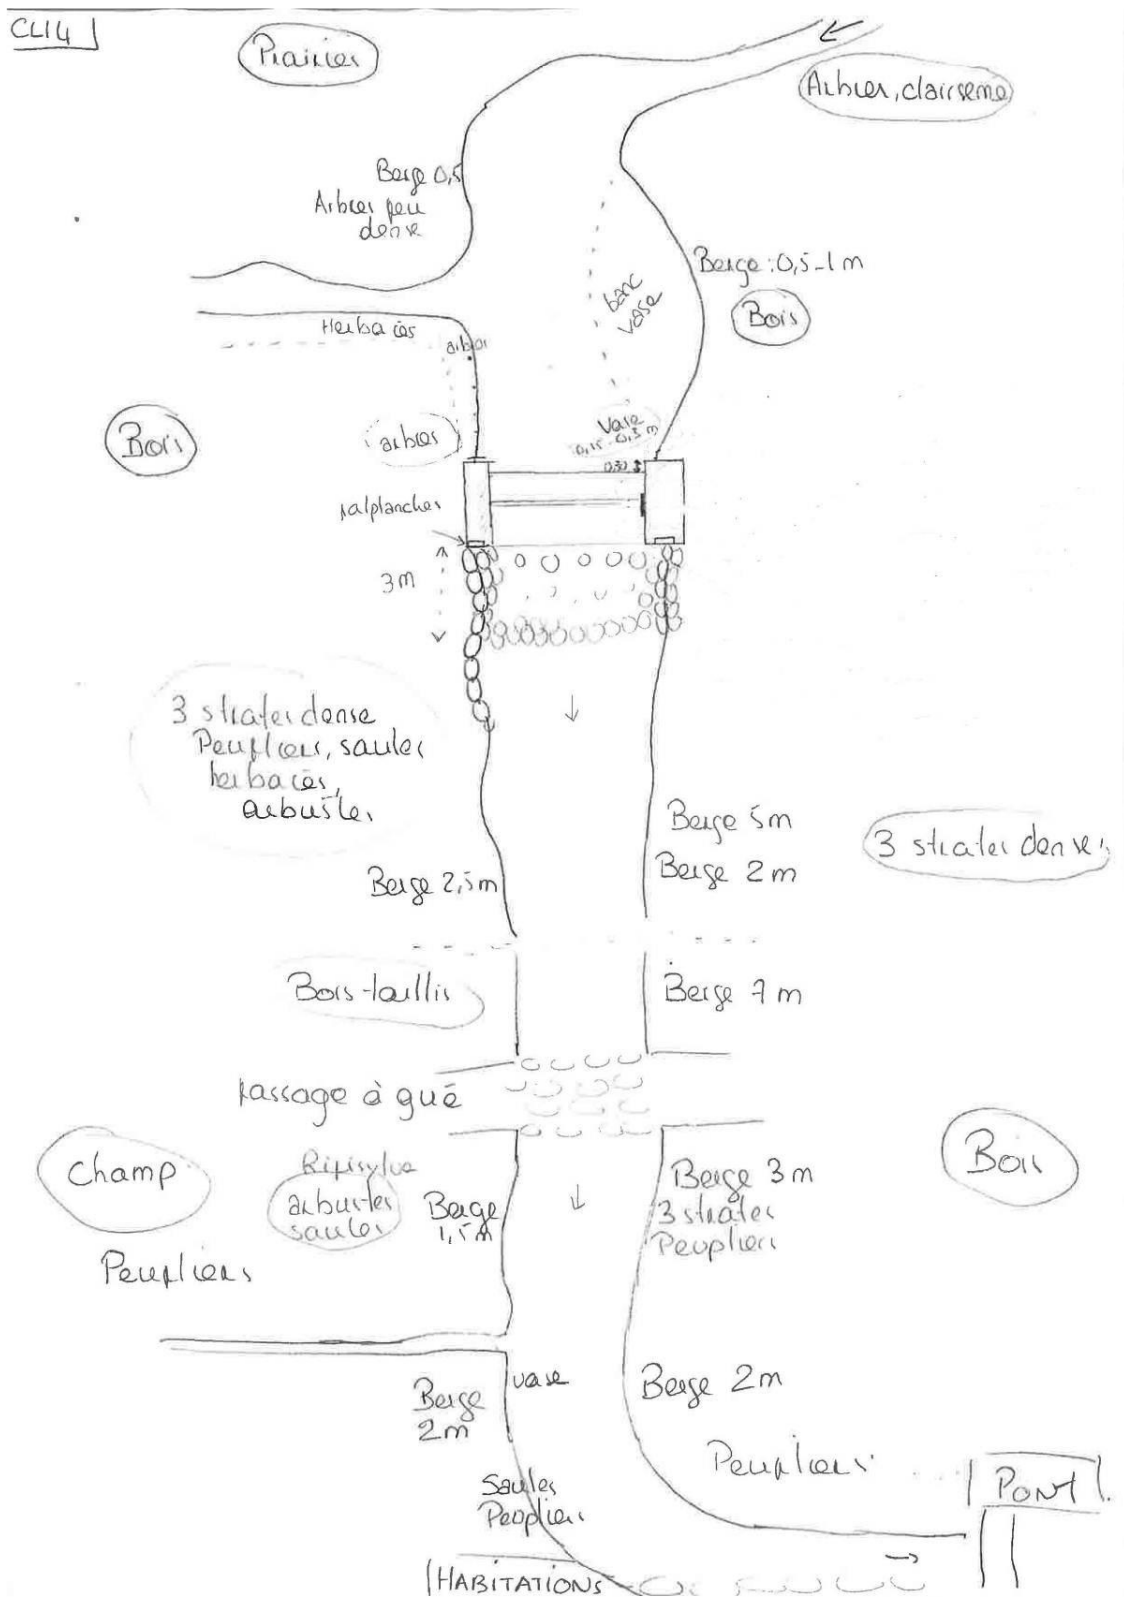 CLI4
Prairies
Arbres, clairsemé
Berge 0,5
Arbres peu
dense
Berge : 0,5-1 m
banc
vase
Bois
Herbacés
arbor
Bois
arbres
Vase
0,15-0,3 m
0,30
palplanches
3 m
3 strates dense
Peupliers, saules
herbacés,
arbustes
Berge 5m
3 strates denses
Berge 2,5m
Berge 2 m
Bois-taillis
Berge 7 m
passage à gué
Champ
Ripisylve
arbustes
saules
Berge
1,5m
Berge 3m
3 strates
Peupliers
Bois
Peupliers
vase
Berge
2m
Berge 2m
Peupliers
PONT
Saules
Peupliers
HABITATIONS